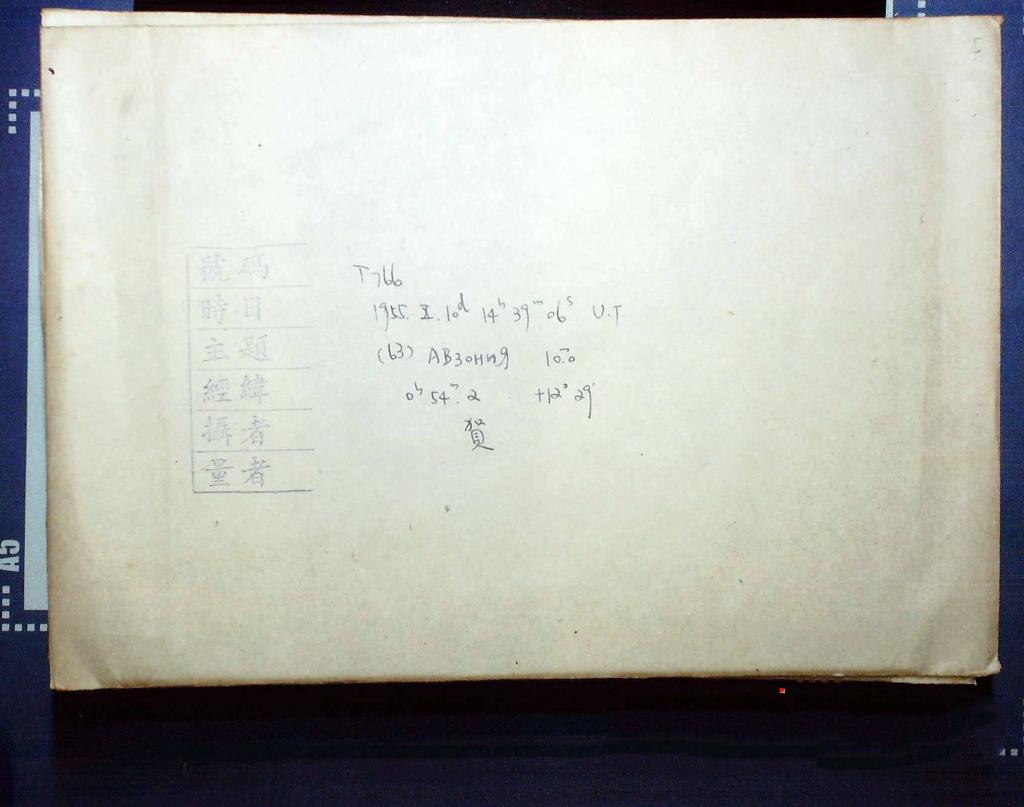 5
號碼 T766
時日 1955. X. 10ᵈ 14ʰ 39ᵐ 06ˢ U.T
主題 (63) АВзония 10ᵐ.0
經緯 0ʰ 54ᵐ.2 +12° 29′
攝者 賀
量者
A5